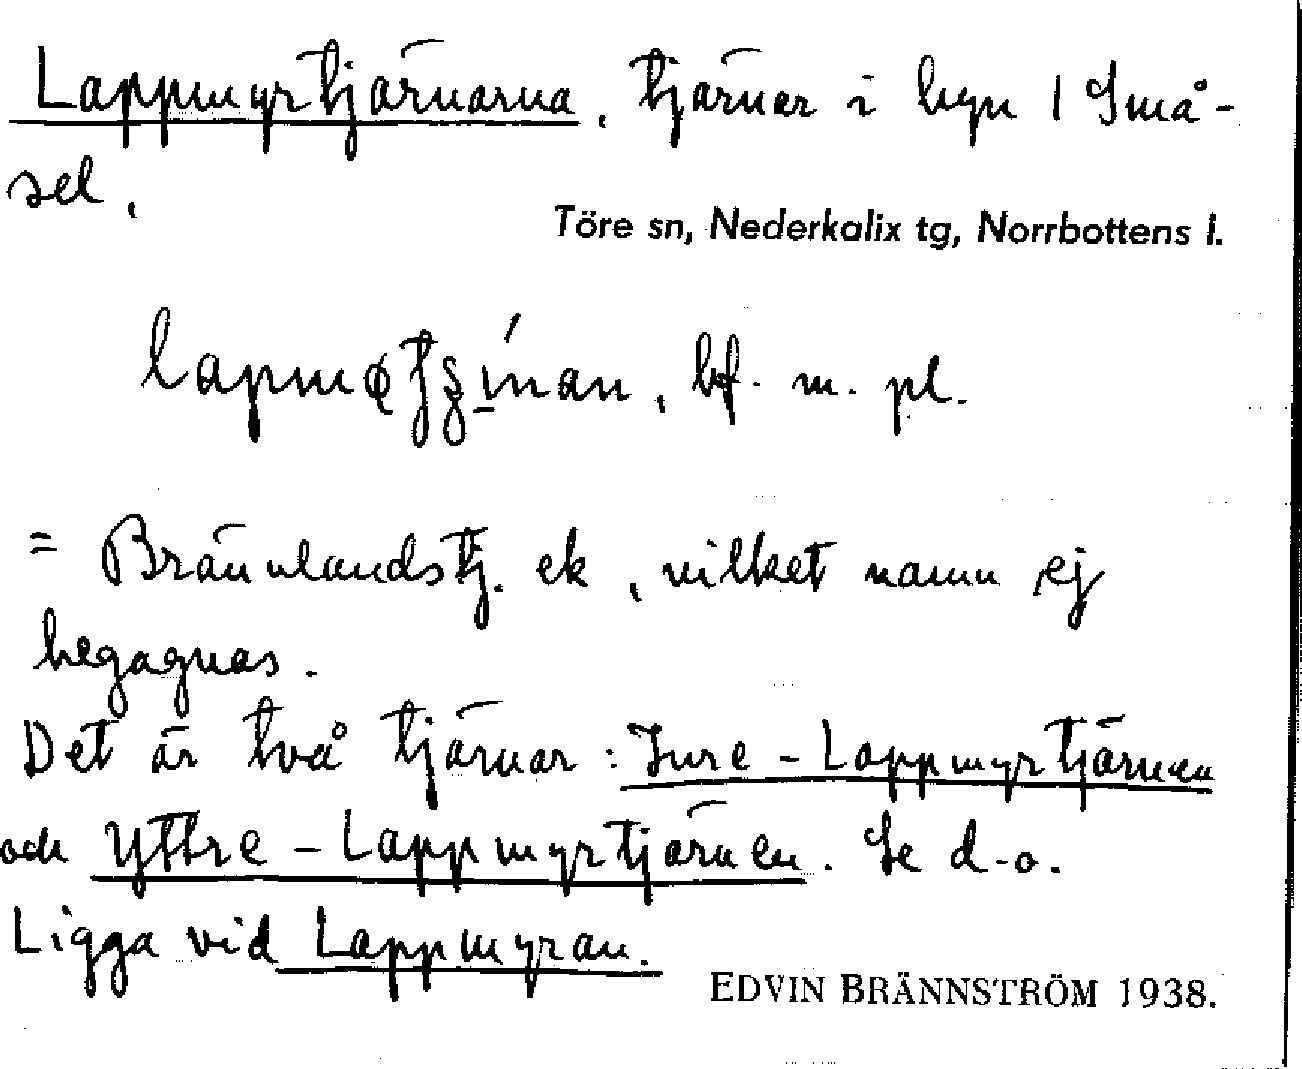 Lappmyrtjärnarna, tjärnar i byn 1 Små-
sel,
Töre sn, Nederkalix tg, Norrbottens l.
bf. m. pl.
= Brännlandstj. ek, vilket namn ej
begagnas.
Det är två tjärnar: Inre-Lappmyrtjärnen
och Yttre-Lappmyrtjärnen. Se d-o.
Ligga vid Lappmyran.
EDVIN BRÄNNSTRÖM 1938.